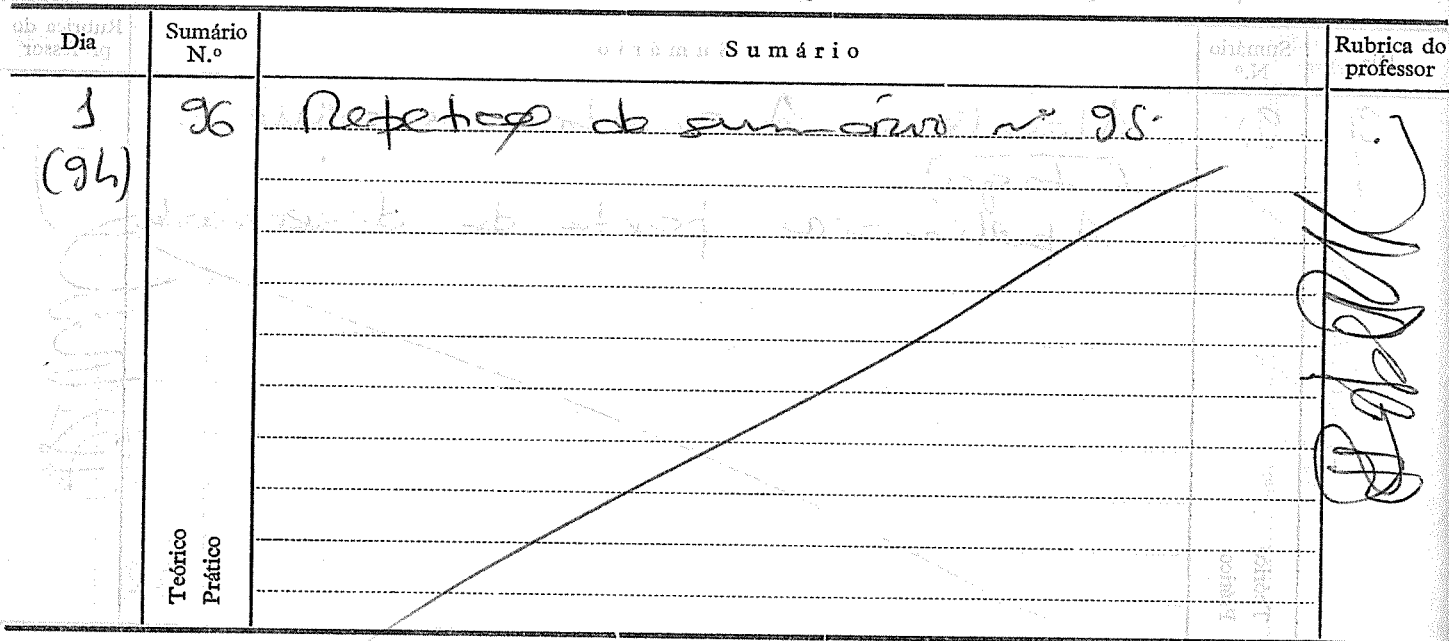 Dia Sumário N.º Sumário Rubrica do professor
1 96 Repetição do sumário nº 95.
(9h)
Teórico
Prático